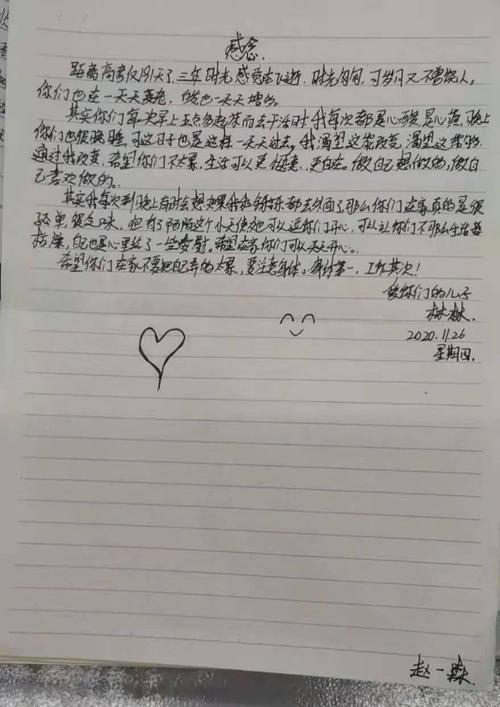 感念
距离高考仅191天了,三年时光感觉在飞逝,时光匆匆,可岁月又不曾饶人,
你们也在一天天变老,自己也一天天增长。
其实你们每次早上五点多起床而去干活时,我每次都是心酸,是心疼,晚上
你们也很晚睡,可这日子也是这样一天天过去。我渴望这些改变,渴望这些能够
通过我改变,希望你们不太累,生活可以更惬意,更自在。做自己想做的,做自
己喜欢做的。
其实我每次到晚上有时会想如果我和 都去外面了,那么你们在家真的是很
孤单,很乏味,但有了陌陌这个小天使她可以逗你们开心,可以让你们不那么生活苦
枯燥,自己心里给了一些安慰,希望在家你们可以天天开心。
希望你们在家不要把自己弄的太累,要注意身体。身体第一,工作其次!
爱你们的儿子
林林
2020.11.26
星期四
赵一